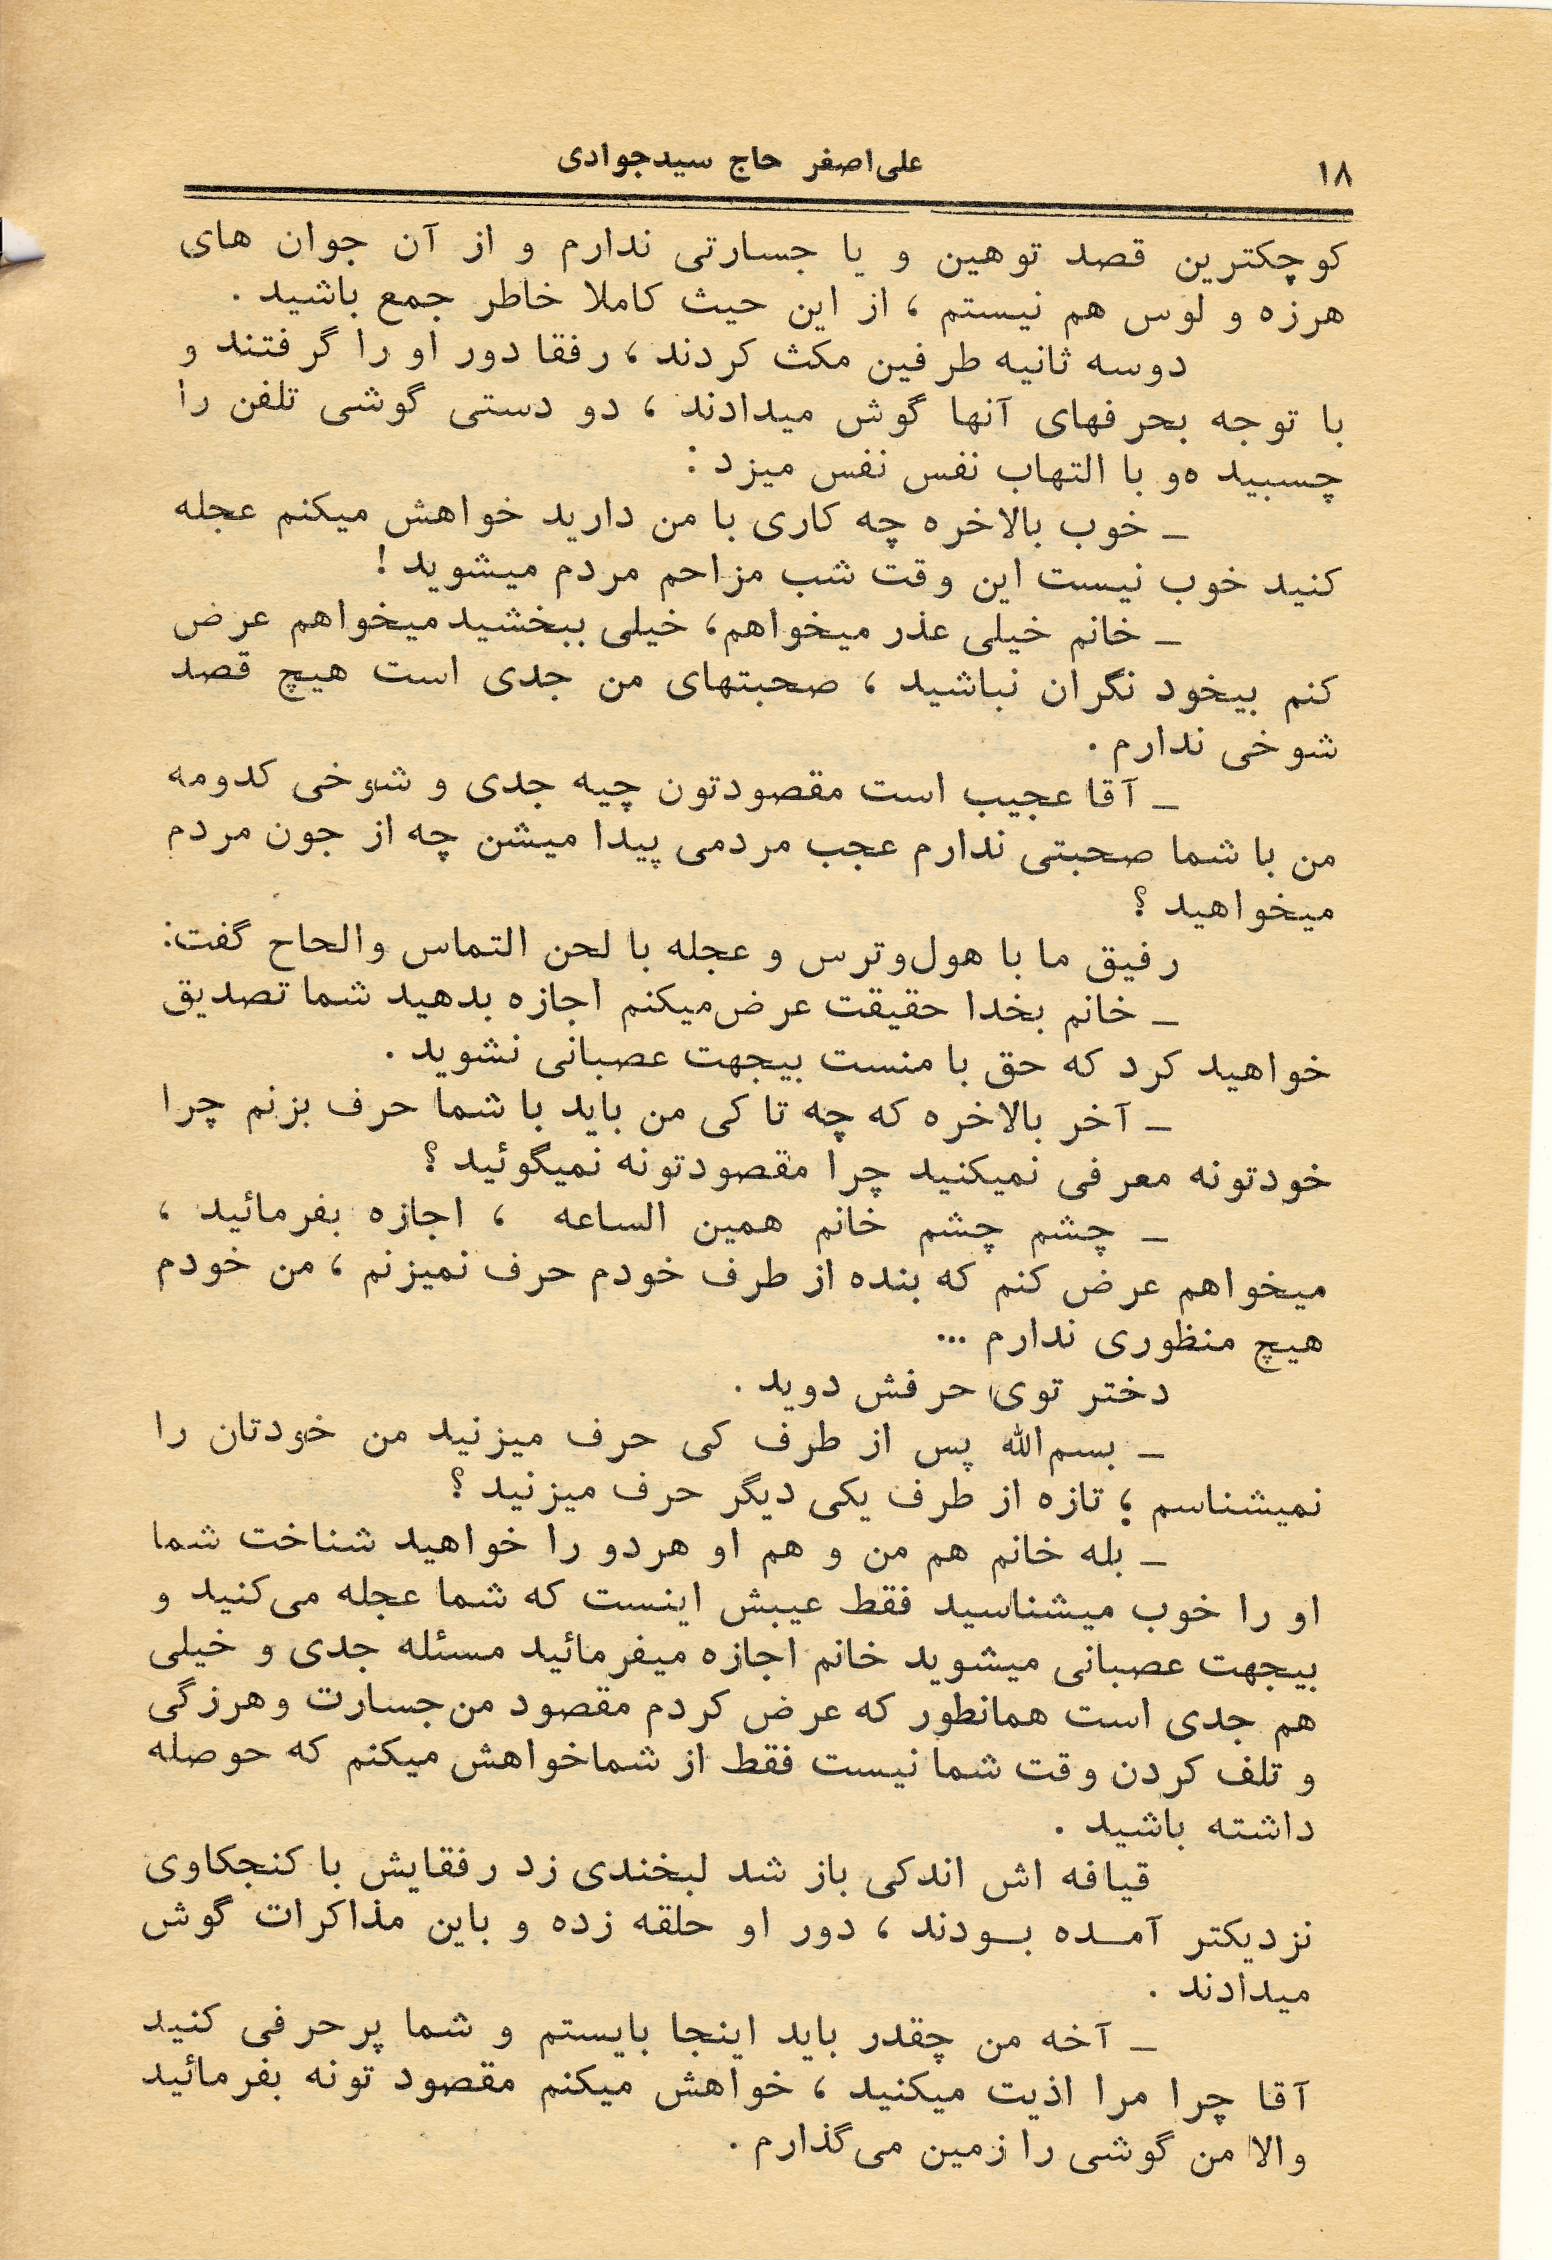 ۱۸
علی‌اصغر حاج سیدجوادی
کوچکترین قصد توهین و یا جسارتی ندارم و از آن جوان های
هرزه و لوس هم نیستم ، از این حیث کاملا خاطر جمع باشید .
دوسه ثانیه طرفین مکث کردند ، رفقا دور او را گرفتند و
با توجه بحرفهای آنها گوش میدادند ، دو دستی گوشی تلفن را
چسبید ه‌و با التهاب نفس نفس میزد :
ـ خوب بالاخره چه کاری با من دارید خواهش میکنم عجله
کنید خوب نیست این وقت شب مزاحم مردم میشوید !
ـ خانم خیلی عذر میخواهم، خیلی ببخشید میخواهم عرض
کنم بیخود نگران نباشید ، صحبتهای من جدی است هیچ قصد
شوخی ندارم .
ـ آقا عجیب است مقصودتون چیه جدی و شوخی کدومه
من با شما صحبتی ندارم عجب مردمی پیدا میشن چه از جون مردم
میخواهید ؟
رفیق ما با هول‌وترس و عجله با لحن التماس والحاح گفت:
ـ خانم بخدا حقیقت عرض‌میکنم اجازه بدهید شما تصدیق
خواهید کرد که حق با منست بیجهت عصبانی نشوید .
ـ آخر بالاخره که چه تا کی من باید با شما حرف بزنم چرا
خودتونه معرفی نمیکنید چرا مقصودتونه نمیگوئید ؟
ـ چشم چشم خانم همین الساعه ، اجازه بفرمائید ،
میخواهم عرض کنم که بنده از طرف خودم حرف نمیزنم ، من خودم
هیچ منظوری ندارم ...
دختر توی حرفش دوید .
ـ بسم‌الله پس از طرف کی حرف میزنید من خودتان را
نمیشناسم ؛ تازه از طرف یکی دیگر حرف میزنید ؟
ـ بله خانم هم من و هم او هردو را خواهید شناخت شما
او را خوب میشناسید فقط عیبش اینست که شما عجله می‌کنید و
بیجهت عصبانی میشوید خانم اجازه میفرمائید مسئله جدی و خیلی
هم جدی است همانطور که عرض کردم مقصود من‌جسارت وهرزگی
و تلف کردن وقت شما نیست فقط از شماخواهش میکنم که حوصله
داشته باشید .
قیافه اش اندکی باز شد لبخندی زد رفقایش با کنجکاوی
نزدیکتر آمـده بـودند ، دور او حلقه زده و باین مذاکرات گوش
میدادند .
ـ آخه من چقدر باید اینجا بایستم و شما پرحرفی کنید
آقا چرا مرا اذیت میکنید ، خواهش میکنم مقصود تونه بفرمائید
والا من گوشی را زمین می‌گذارم .